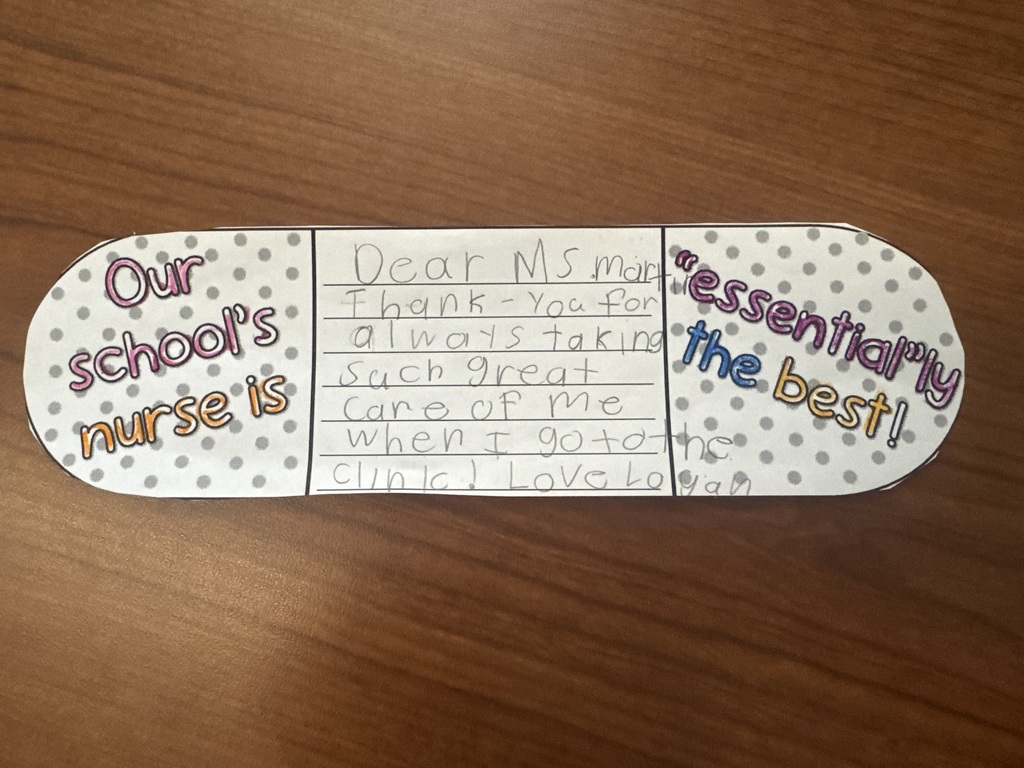 Our
school's
nurse is
Dear Ms.
Thank-You for
always taking
such great
care of me
when I go to the
clinic! Love Logan
"essential"ly
the best!